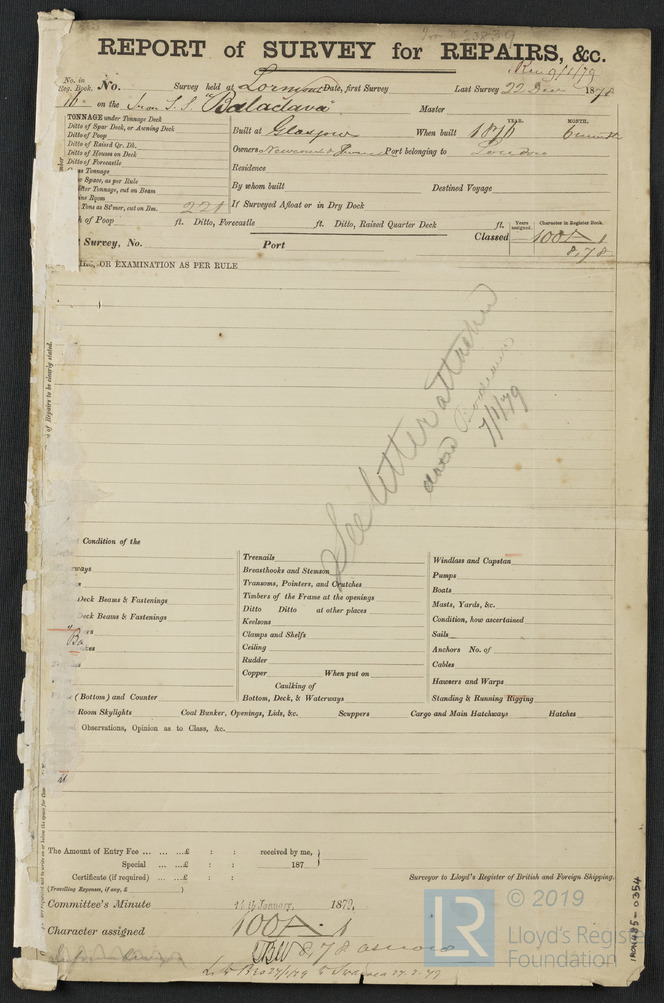 Iron 23839
REPORT of SURVEY for REPAIRS, &c.
Rec 9/1/79
No. in Reg. Book. No. Survey held at Lormont Date, first Survey Last Survey 22 Dec 1878
on the Iron S.S. "Balaclava" Master
TONNAGE under Tonnage Deck
Ditto of Spar Deck, or Awning Deck
Ditto of Poop
Ditto of Raised Qr. Dk.
Ditto of Houses on Deck
Ditto of Forecastle
Tonnage
Space, as per Rule
Tonnage, cut on Beam
Room
Tons as St'mer, cut on Bm. 221
Built at Glasgow When built 1876 YEAR. MONTH. 6 month
Owners Port belonging to London
Residence
By whom built Destined Voyage
If Surveyed Afloat or in Dry Dock
of Poop ft. Ditto, Forecastle ft. Ditto, Raised Quarter Deck ft.
Survey, No. Port Classed
Years assigned. Character in Register Book.
100A1
8,78
OR EXAMINATION AS PER RULE
of Repairs to be clearly stated.
See letter attached
dated Bordeaux
7/1/79
Condition of the
Deck Beams & Fastenings
Deck Beams & Fastenings
(Bottom) and Counter
Treenails
Breasthooks and Stemson
Transoms, Pointers, and Crutches
Timbers of the Frame at the openings
Ditto Ditto at other places
Keelsons
Clamps and Shelfs
Ceiling
Rudder
Copper When put on
Caulking of
Bottom, Deck, & Waterways
Windlass and Capstan
Pumps
Boats
Masts, Yards, &c.
Condition, how ascertained
Sails
Anchors No. of
Cables
Hawsers and Warps
Standing & Running Rigging
Room Skylights Coal Bunker, Openings, Lids, &c. Scuppers Cargo and Main Hatchways Hatches
Observations, Opinion as to Class, &c.
The Amount of Entry Fee ... ... ...£ : : received by me,
Special ... ...£ : : 187
Certificate (if required) ... ...£ : :
(Travelling Expenses, if any, £ )
Surveyor to Lloyd's Register of British and Foreign Shipping.
Committee's Minute 14th January, 1879.
Character assigned 100A.1
8,78
IRON485-0354
LR
© 2019
Lloyd's Register
Foundation